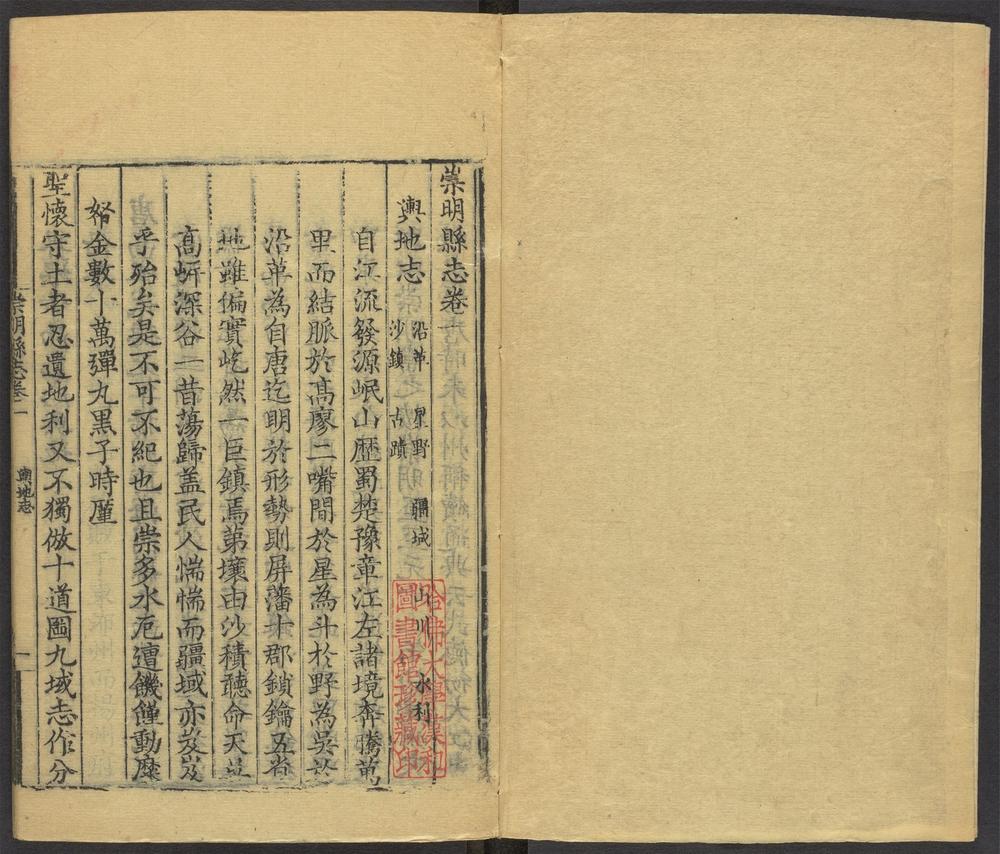 崇明縣志卷
輿地志 沿革 星野 疆域 山川 水利
沙鎮 古蹟
自江流發源岷山歴蜀楚豫章江左諸境奔騰萬
里而結脈於髙廖二嘴間於星為斗於野為吳於
沿革為自唐迄明於形勢則屏藩郡鎖鑰五省
地雖偏實屹然一巨鎮焉第壤由沙積聽命天
髙岸深谷一昔蕩歸盖民人惴惴而疆域亦岌岌
乎殆矣是不可不紀也且崇多水厄遭饑饉動糜
帑金數十萬彈丸黒子時厪
聖懷守土者忍遺地利又不獨倣十道圖九域志作分
崇明縣志卷 輿地志 一
哈佛大學漢和
圖書館珍藏印